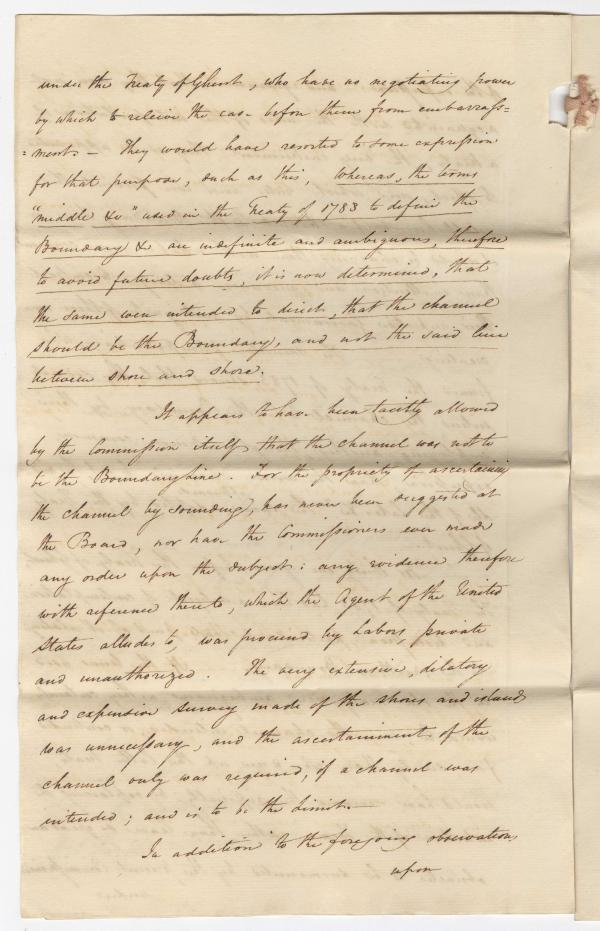 under the Treaty of Ghent, who have no negotiating power
by which to releive the case before them from embarrass=
=ment. — They would have resorted to some expression
for that purpose, such as this, Whereas, the terms
"middle &c" used in the Treaty of 1783 to define the
Boundary &c are indefinite and ambiguous, therefore
to avoid future doubts, it is now determined, that
the same were intended to direct, that the channel
should be the Boundary, and not the said line
between shore and shore.
It appears to have been tacitly allowed
by the Commission itself that the channel was not to
be the Boundary Line. For the propriety of ascertaining
the channel by sounding, has never been suggested at
the Board, nor have the Commissioners ever made
any order upon the subject: any evidence therefore
with reference thereto, which the Agent of the United
States alludes to, was procured by Labors, private
and unauthorized. The very extensive, dilatory
and expensive survey made of the shores and islands
was unnecessary, and the ascertainment of the
channel only was required, if a channel was
intended; and is to be the Limit. —
In addition to the foregoing observations
upon